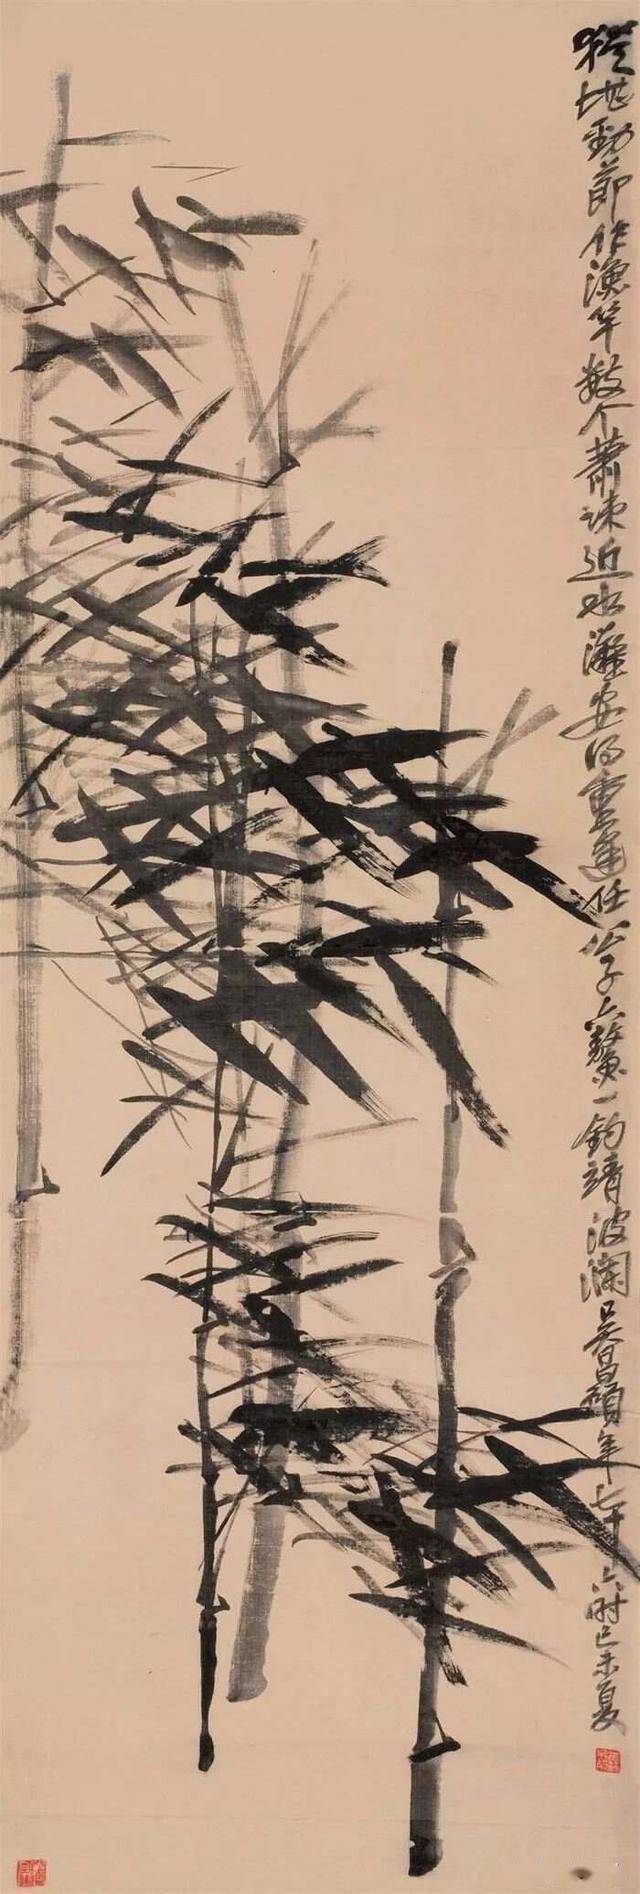 堪勁節作漁竿數个蕭疎近水灘安得重逢任公子六鰲一釣靖波瀾吳昌碩年七十六時己未夏